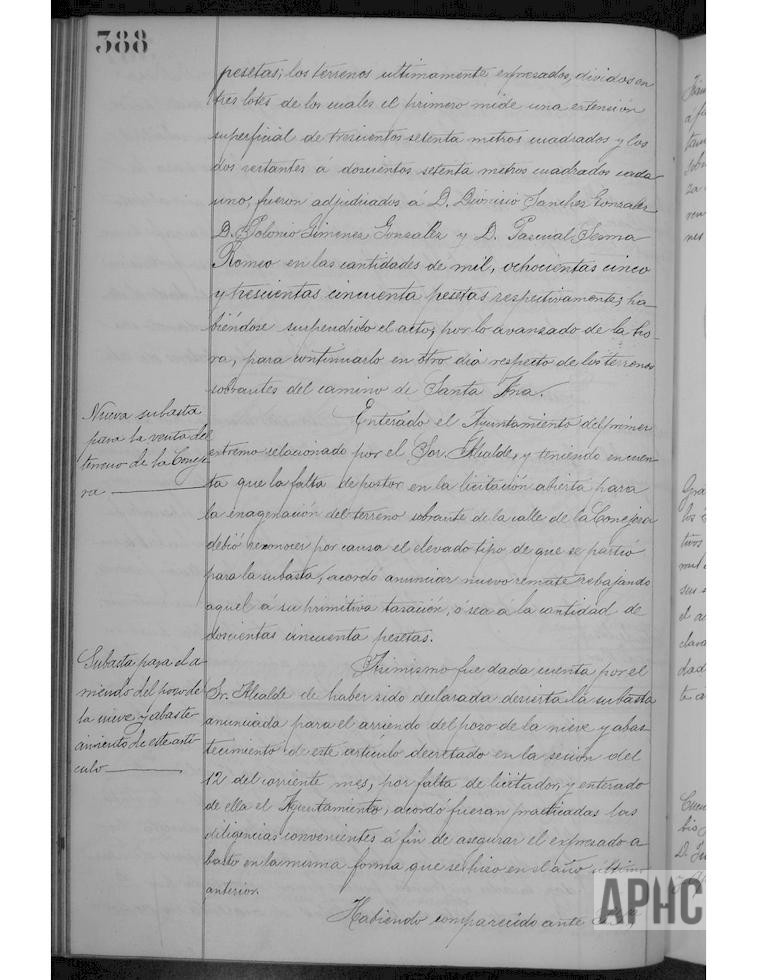 388
pesetas; los terrenos ultimamente expresados, divididos en
tres lotes de los cuales el primero mide una extensión
superficial de trescientos setenta metros cuadrados y los
dos restantes á doscientos setenta metros cuadrados cada
uno, fueron adjudicados á D. Dionisio Sanchez Gonzalez
D. Polonio Gimenez Gonzalez y D. Pascual Sesma
Romeo en las cantidades de mil, ochocientas cinco
y trescientas cincuenta pesetas respectivamente; ha-
biéndose suspendido el acto, por lo avanzado de la ho-
ra, para continuarlo en otro dia respecto de los terrenos
sobrantes del camino de Santa Ana.
Nueva subasta
para la venta del
terreno de la Coneje
ra
Enterado el Ayuntamiento del primer
extremo relacionado por el Sor. Alcalde, y teniendo en cuen-
ta que la falta de postor en la licitación abierta para
la enagenación del terreno sobrante de la calle de la Conejera
debió reconocer por causa el elevado tipo de que se partió
para la subasta, acordó anunciar nuevo remate rebajando
aquel á su primitiva tasación, ó sea á la cantidad de
doscientas cincuenta pesetas.
Subasta para el a
rriendo del pozo de
la nieve y abaste
cimiento de este artí
culo
Asimismo fue dada cuenta por el
Sr. Alcalde de haber sido declarada desierta la subasta
anunciada para el arriendo del pozo de la nieve y abas-
tecimiento de este artículo decretado en la sesión del
12 del corriente mes, por falta de licitador, y enterado
de ella el Ayuntamiento, acordó fueran practicadas las
diligencias convenientes á fin de asegurar el expresado a
basto en la misma forma que se hizo en el año último
anterior.
Habiendo comparecido ante
APHC